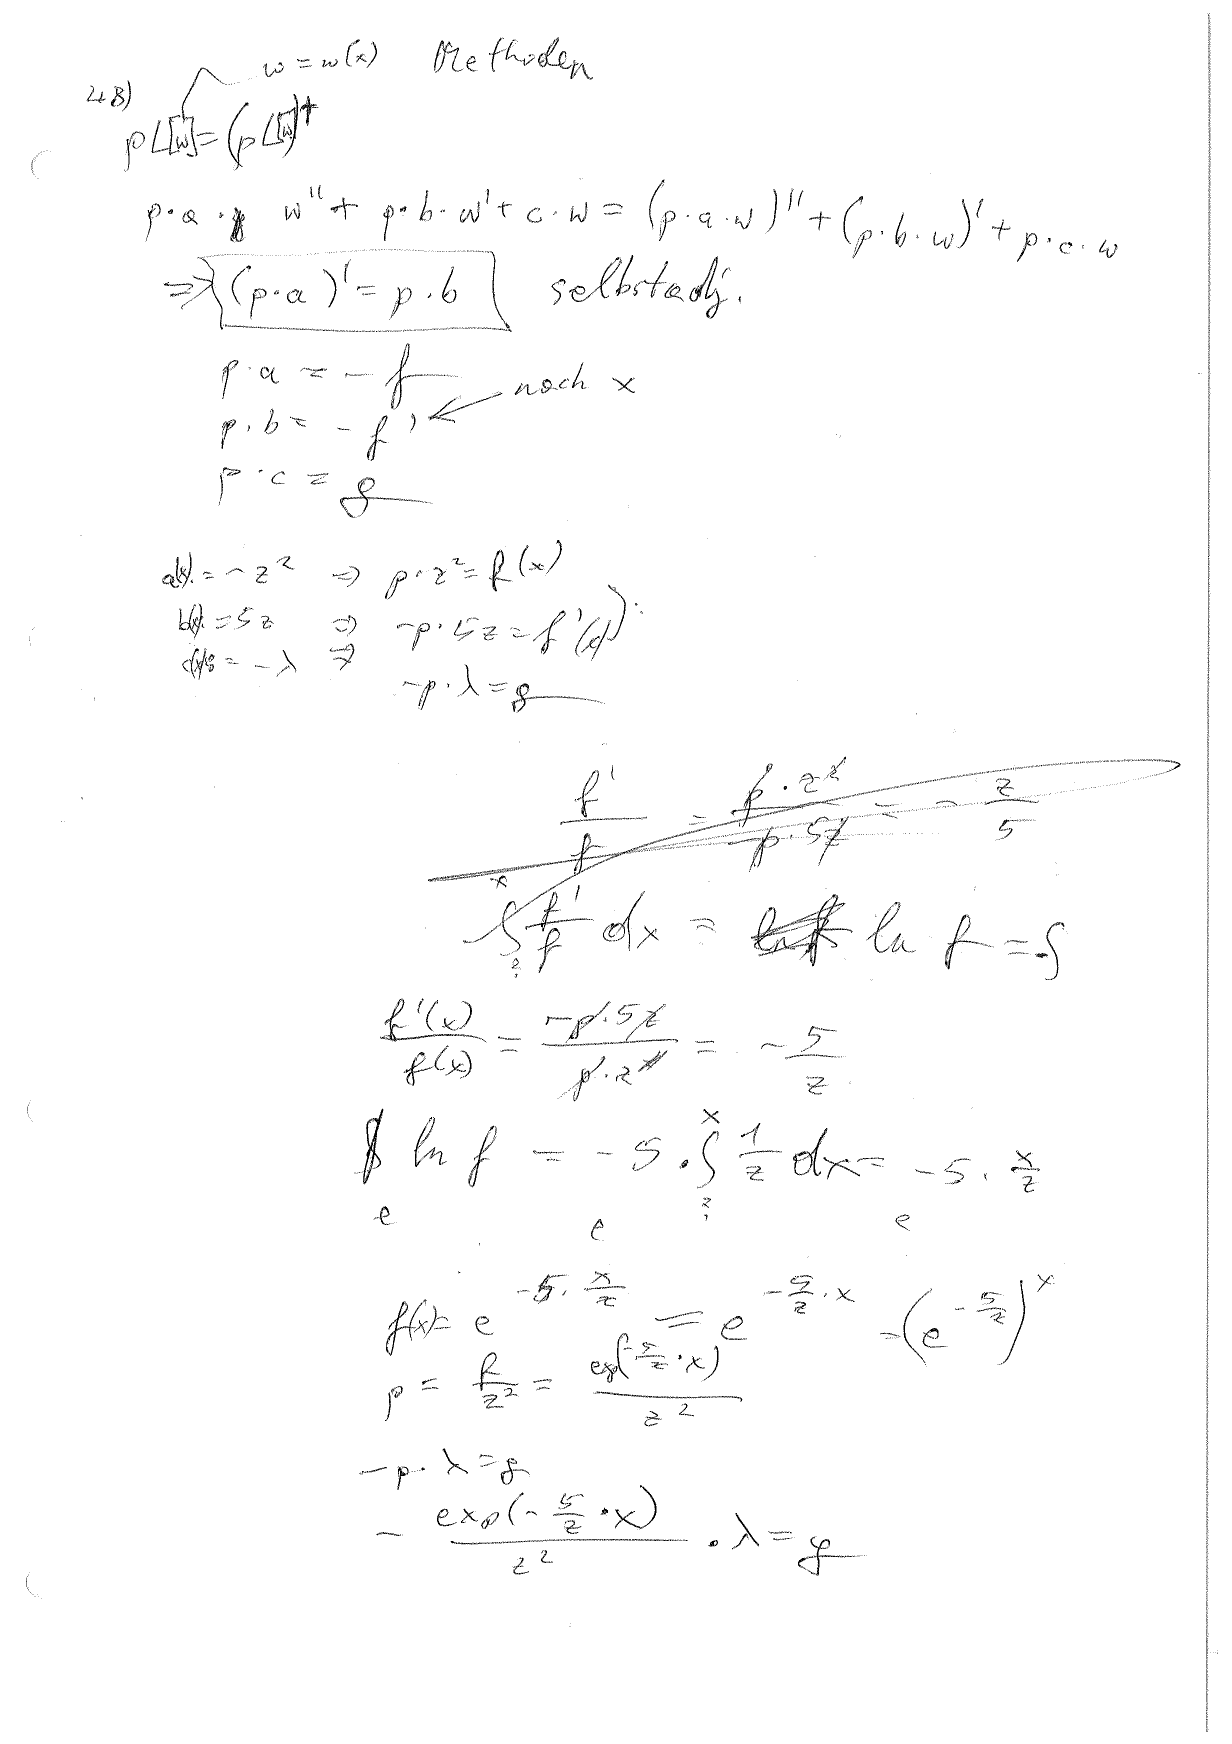 w = w(x) Methoden
4B)
pL[w] = (pL[w])†
p·a· w'' + p·b·w' + c·w = (p·a·w)'' + (p·b·w)' + p·c·w
⇒ (p·a)' = p·b selbstadj.
p·a = -f
p·b = -f' ← nach x
p·c = g
a(x) = -z² ⇒ p·z² = f(x)
b(x) = 5z ⇒ -p·5z = f'(x)
= -λ ⇒
-p·λ = g
f'/f = p·z²/-p·5z = -z/5
∫?^x f'/f dx = ln f = -∫
f'(x)/f(x) = -p·5z/p·z² = -5/z
ln f = -5·∫?^x 1/z dx = -5·x/z
e e e
f(x) = e^(-5·x/z) = e^(-5/z·x) = (e^(-5/z))^x
p = f/z² = exp(-5/z·x)/z²
-p·λ = g
- exp(-5/z·x)/z² · λ = g